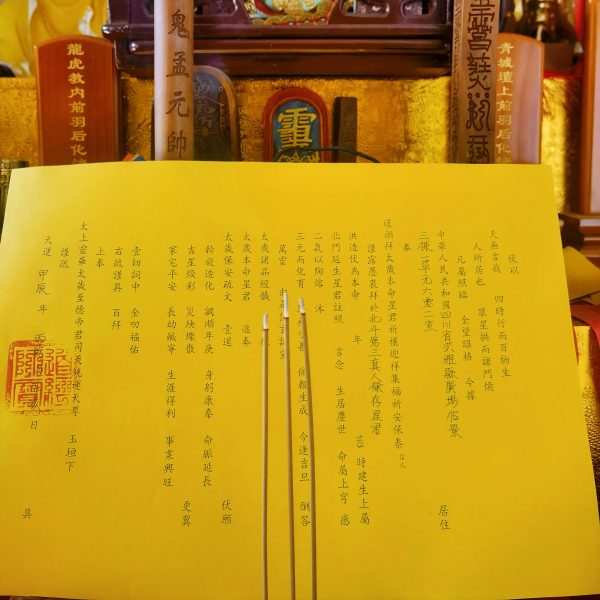 鬼孟元帥
龍虎教內前羽后化
靈
青城壇上前羽后化
伏以
天無言哉 四時行而百物生
人所居也 眾星拱而諸門燦
凡屬照臨 全望詔格 今據
中華人民共和國四川省 廣場 居住
單元六零二室
奉
道朝拜太歲本命星君祈禳迎祥集福祈安保泰 信人
年 吉 時建生上屬
謹露愚衷拜於北斗第三真人祿存星君
洪造伏為本命
北門延生星君註照 言念 生居塵世 命屬上宵 感
二氣以陶鎔 沐
三元而化育 生成 今逢吉旦 酬答
萬靈
太歲諸品經懺
太歲本命星君 進奏
太歲保安疏文 壹道 伏願
斡旋造化 調順年庚 身躬康泰 命脈延長
吉星煥彩 災殃 散 更冀
家宅平安 長幼鹹寧 生涯得利 事業興旺
壹切詞中 全叨福佑
右疏謹具 百拜
上奉
太上靈華太歲至德帝君司天統運大尊 玉垣下
謹疏
天運 甲辰年 日 具